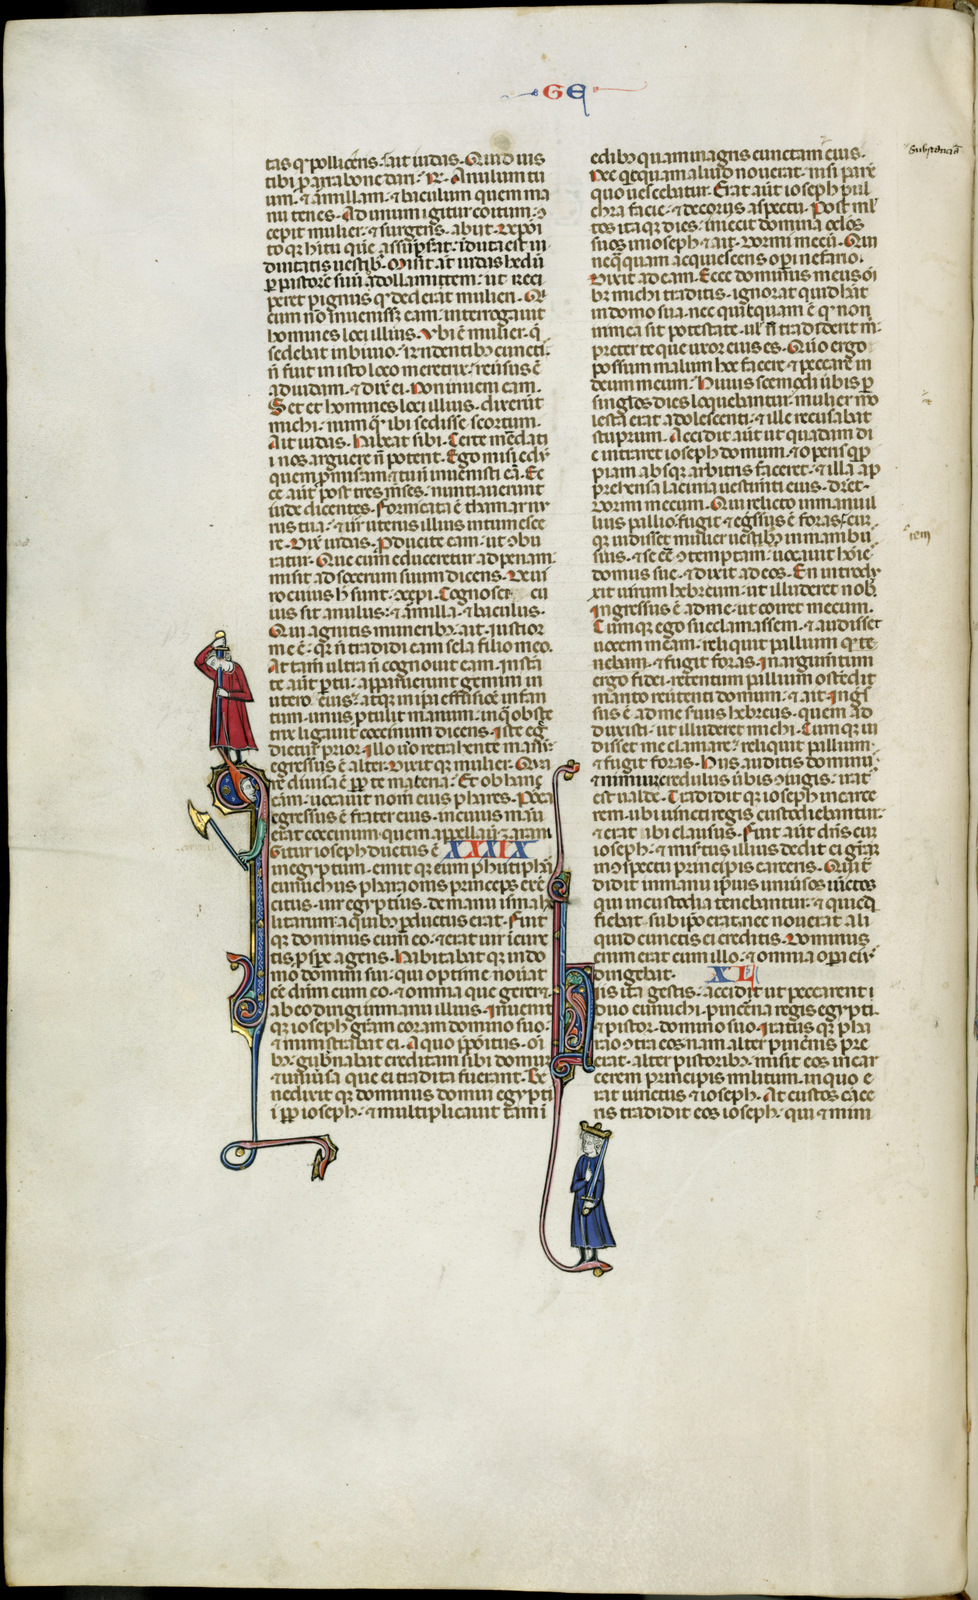 GE
tas q' pollicens. Ait iudas. Quid uis
tibi p arrabone dari. R. Anulum tu
um. & armillam. & baculum quem ma
nu tenes. Ad unum igitur coitum ɔ
cepit mulier. & surgens abiit. Depoi
to q; hitu que assūpserat. iduta est ui
duitatis uestib;. Misit aūt iudas hedū
p pastorē suū adollamittem. ut reci
peret pignus qd dederat mulieri. Qi
cum nō inuenisset eam. interrogauit
homines loci illius. Vbi ē mulier. q̄
sedebat in biuio. Rndentib; cuncti.
n̄ fuit in isto loco meretrix. reuersus ē
ad iudam. & dix̄ ei. Non inueni eam.
Set et homines loci illius. dixerūt
michi. nunq̄ ibi sedisse scortum.
Ait iudas. Habeat sibi. Certe mēdatii
nos arguere n̄ poterit. Ego misi edū
quem pmiseram. & tu n̄ inuenisti eā. Ec
ce aūt post tres mēses. nuntiauerunt
iude dicentes. Fornicata ē thamar nu
rus tua. & uidr uterus illius intumesce
re. Dix̄ iudas. Pducite eam. ut ɔbu
ratur. Que cum educeretur ad penam.
misit ad socerum suum dicens. De ui
ro cuius h̄ sunt. ɔcepi. Cognosce cu
ius sit anulus. & armilla. & baculus.
Qui agnitis munerib; ait. Iustior
me ē. q̄ n̄ tradidi eam sela filio meo.
At tam̄ ultra n̄ cognouit eam. Instā
te aūt ptu. apparuerunt gemini in
utero eius. atq; in ipa effusiōe infan
tum. unus ptulit manum. in q̄ obste
trix ligauit coccinum dicens. Iste eg̃
dietur prior. Illo uō retrahente manū.
egressus ē alter. Dixit q; mulier. Qua
re diuisa ē pp te maceria. Et ob hanc
cām. uocauit nom̄ eius phares. Postea
egressus ē frater eius. in cuius manu
erat coccinum. quem appellauit zaram
Igitur ioseph ductus ē XXXIX
in egyptum. emit q; eum phutiphar
eunuchus pharaonis princeps exer
citus. uir egyptius. de manu ismahe
litarum. a quib; pductus erat. Fuit
q; dominus cum eo. & erat uir i cunc
tis pspe agens. Habitabat q; in do
mo domini sui. qui optime nouāt
eē dn̄m cum eo. & omnia que gereret.
ab eo dirigi in manu illius. Inuenit
q; ioseph gr̄am coram domino suo.
& ministrabat ei. A quo ppositus oī
b;. gub̄nabat creditam sibi domum
& uniūsa que ei tradita fuerant. Be
nedixit q; dominus domui egyptii
pp ioseph. & multiplicauit tam i
edib; quam in agris cunctam eius.
Nec quicquam aliud nouerat. nisi panē
quo uescebatur. Erat aūt ioseph pul
chra facie. & decorus aspectu. Post ml̄
tos itaq; dies. iniecit domina oculos
suos in ioseph & ait. Dormi mecū. Qui
neq̄quam acquiescens opi nefario.
Dixit ad eam. Ecce dominus meus oī
b; michi traditis. ignorat quid hāt
in domo sua. nec quicquam ē qd non
in mea sit potestate. ul' n̄ tradiderit m̄.
preter te que uxor eius es. Quō ergo
possum malum hoc facere. & peccare in
deum meum. Huiuscemodi ūbis p
singlos dies loquebantur. mulier mo
lesta erat adolescenti. & ille recusabat
stuprum. Accidit aūt ut quadam di
e intraret ioseph domum. & opis q̄p
piam absq; arbitris faceret. & illa ap
prehensa lacinia uestimti eius. dicēt.
Dormi mecum. Qui relicto in manu il
lius pallio. fugit & eḡssus ē foras. Cum
q; uidisset mulier uestē in manibus
suis. & se eē ɔtemptam. uocauit hoīes
domus sue. & dixit ad eos. En introdu
xit uirum hebreum. ut illuderet nob.
Ingressus ē ad me. ut coiret mecum.
Cumq; ego succlamassem. & audisset
uocem meam. reliquit pallium qd te
nebam. & fugit foras. In argumtum
ergo fidei. retentum pallium ostēdit
marito reūtenti domum. & ait. Ings
sus ē ad me seruus hebreus. quem ad
duxisti. ut illuderet michi. Cumq; ui
disset me clamare. reliquit pallium.
& fugit foras. Hiis auditis dominus
& nimium credulus ūbis ɔiugis. irat
est ualde. Tradidit q; ioseph in carce
rem. ubi uincti regis custodiebantur.
& erat ibi clausus. Fuit aūt dn̄s cum
ioseph. & misertus illius dedit ei gr̄am
in ɔspectu principis carceris. Qui tra
didit in manu ipius uniūsos uinctos
qui in custodia tenebantur. & quicq̄d
fiebat. sub ipo erat. nec nouerat ali
quid cunctis ei creditis. Dominus
cum erat cum illo. & omnia opa eius
dirigebat. XL
Hiis ita gestis. accidit ut peccarent
duo eunuchi. pincerna regis egypti.
& pistor. domino suo. Iratus q; pha
rao ɔtra eos nam alter pincernis pre
erat. alter pistorib;. misit eos in car
cerem principis militum. in quo e
rat uinctus & ioseph. At custos carce
ris tradidit eos ioseph. qui & mini